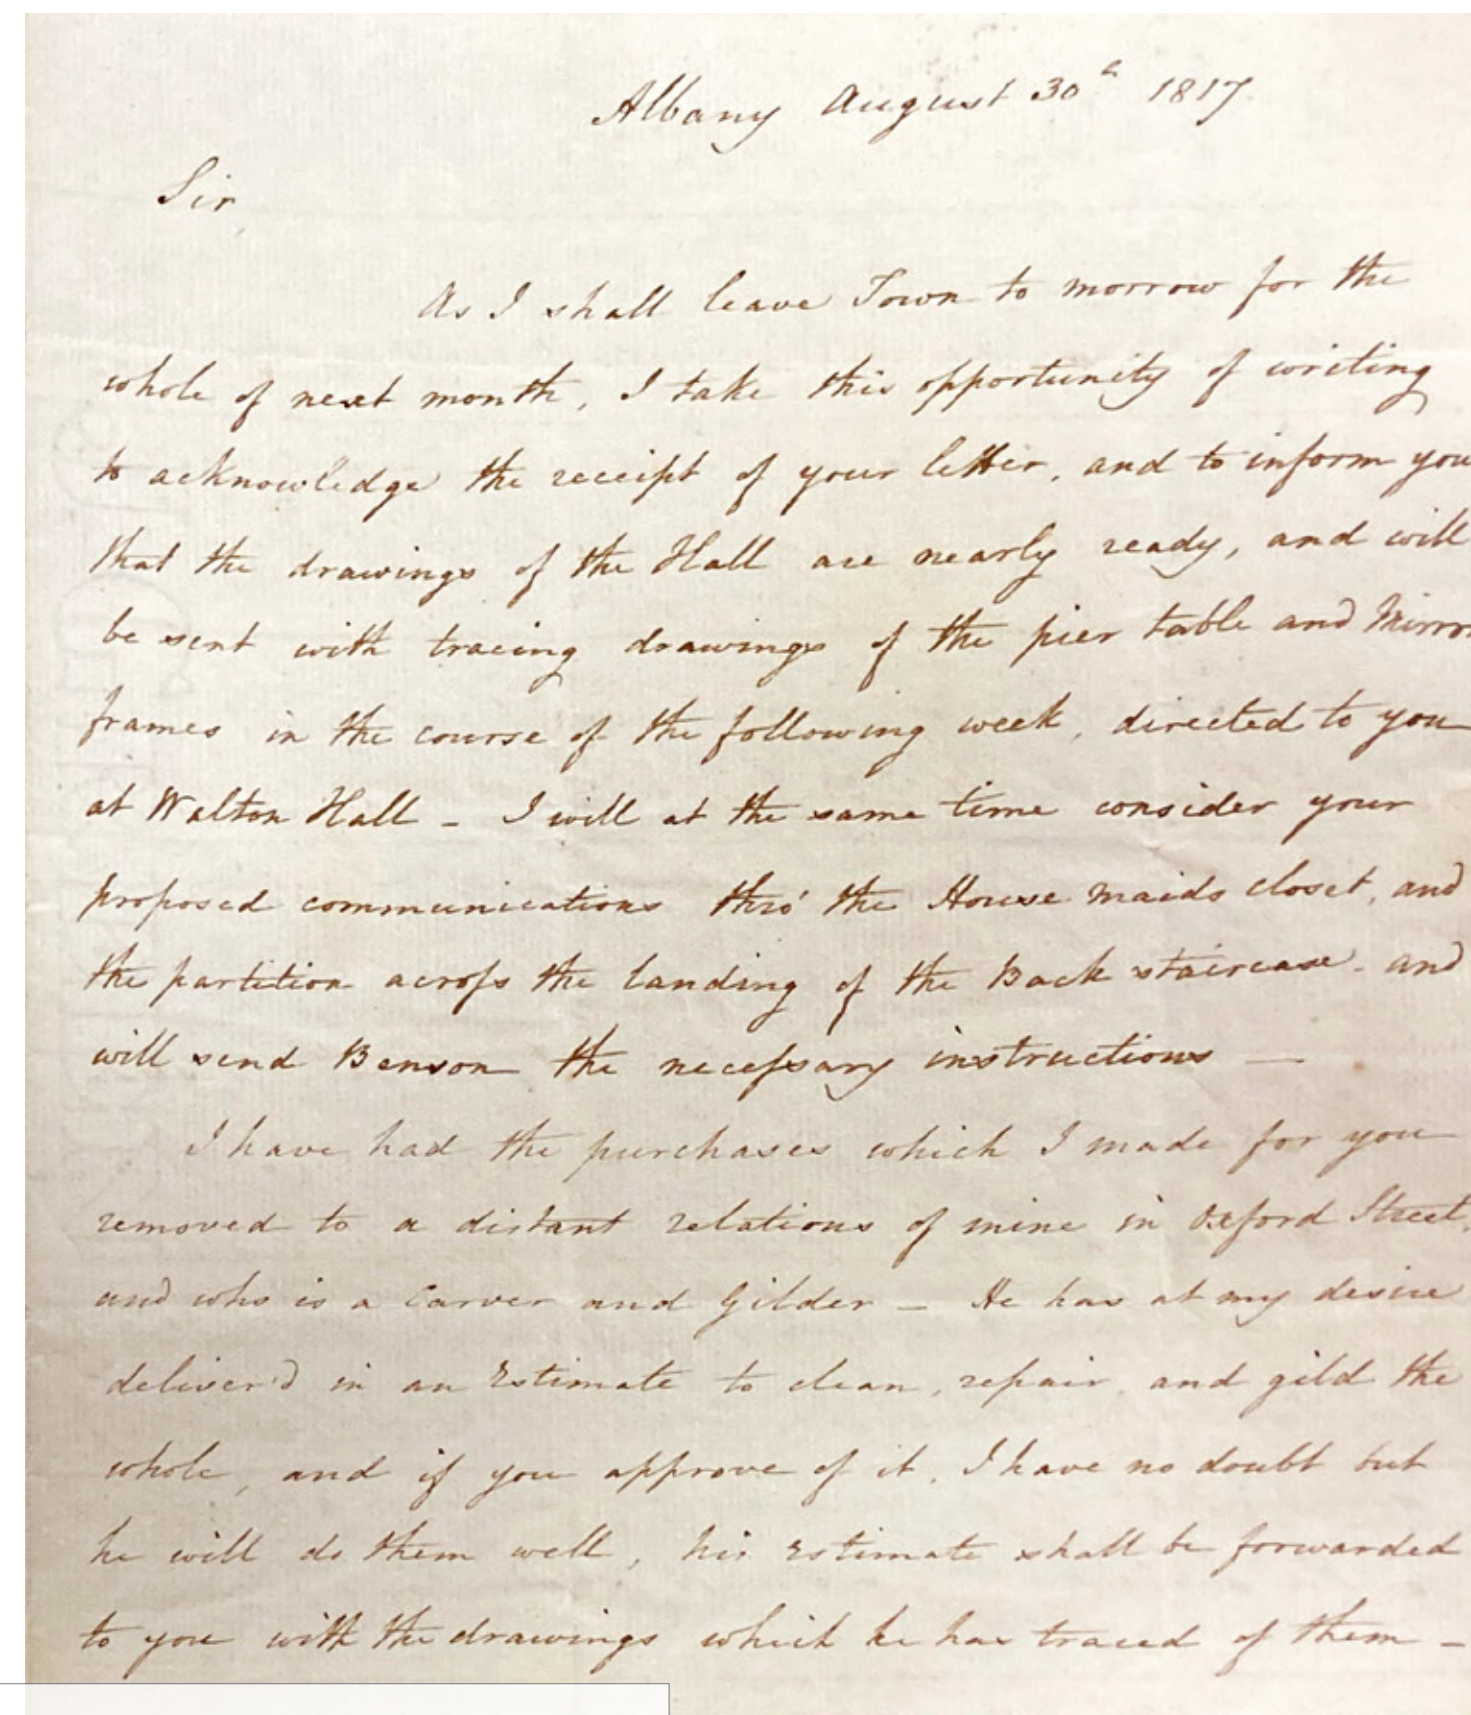 Albany August 30th 1817
Sir,
As I shall leave Town to morrow for the
whole of next month, I take this opportunity of writing
to acknowledge the receipt of your letter, and to inform you
that the drawings of the Hall are nearly ready, and will
be sent with tracing drawings of the pier table and Mirror
frames in the course of the following week, directed to you
at Walton Hall - I will at the same time consider your
proposed communications thro' the House maids closet, and
the partition across the landing of the Back staircase - and
will send Benson the necessary instructions —
I have had the purchases which I made for you
removed to a distant relations of mine in Oxford Street,
and who is a Carver and Gilder - He has at my desire
deliver'd in an Estimate to clean, repair, and gild the
whole, and if you approve of it, I have no doubt but
he will do them well, his Estimate shall be forwarded
to you with the drawings which he has traced of them -